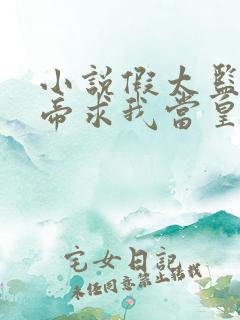 小説假太監
帝求我當皇
宅女日記
未经同意禁止转载